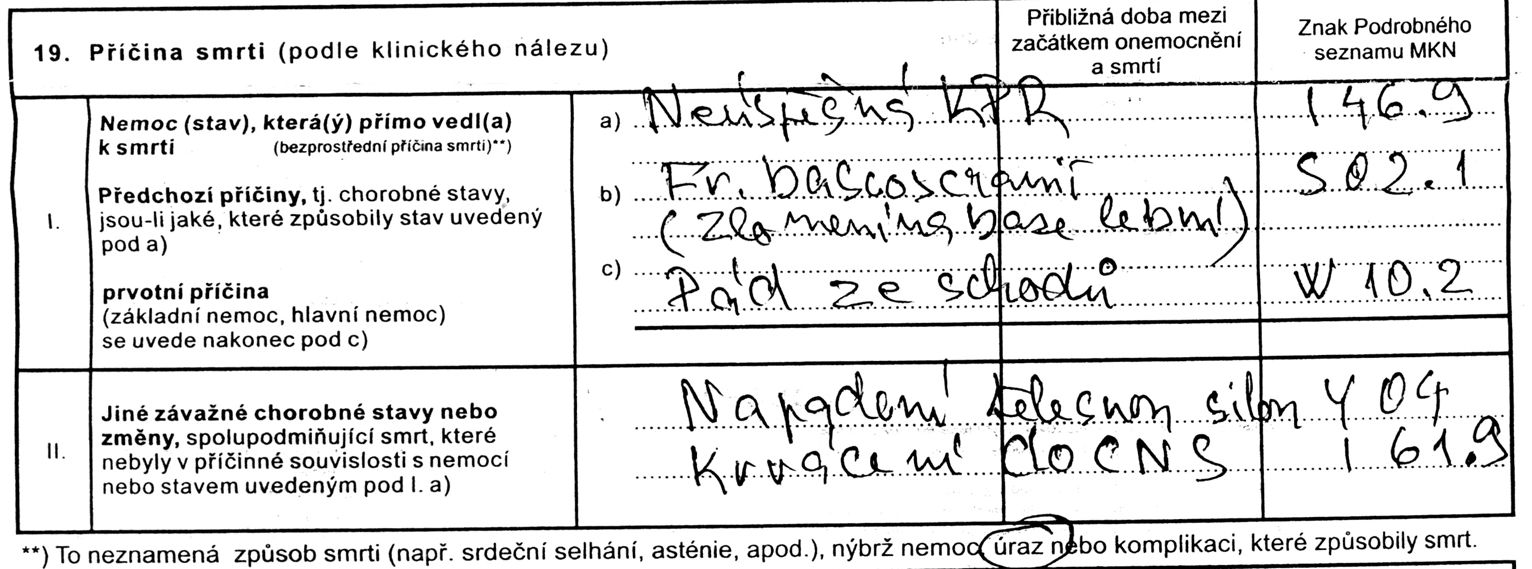 19. Příčina smrti (podle klinického nálezu)
Přibližná doba mezi
začátkem onemocnění
a smrtí
Znak Podrobného
seznamu MKN
I.
Nemoc (stav), která(ý) přímo vedl(a)
k smrti (bezprostřední příčina smrti)**)
a) Neúspěšná KPR I 46.9
Předchozí příčiny, tj. chorobné stavy,
jsou-li jaké, které způsobily stav uvedený
pod a)
b) Fr. bascoscranii S 02.1
(zlomenina base lební)
prvotní příčina
(základní nemoc, hlavní nemoc)
se uvede nakonec pod c)
c) Pád ze schodů W 10.2
II.
Jiné závažné chorobné stavy nebo
změny, spolupodmiňující smrt, které
nebyly v příčinné souvislosti s nemocí
nebo stavem uvedeným pod I. a)
Napadení tělesnou silou Y 04
Krvácení do CNS I 61.9
**) To neznamená způsob smrti (např. srdeční selhání, asténie, apod.), nýbrž nemoc, úraz nebo komplikaci, které způsobily smrt.